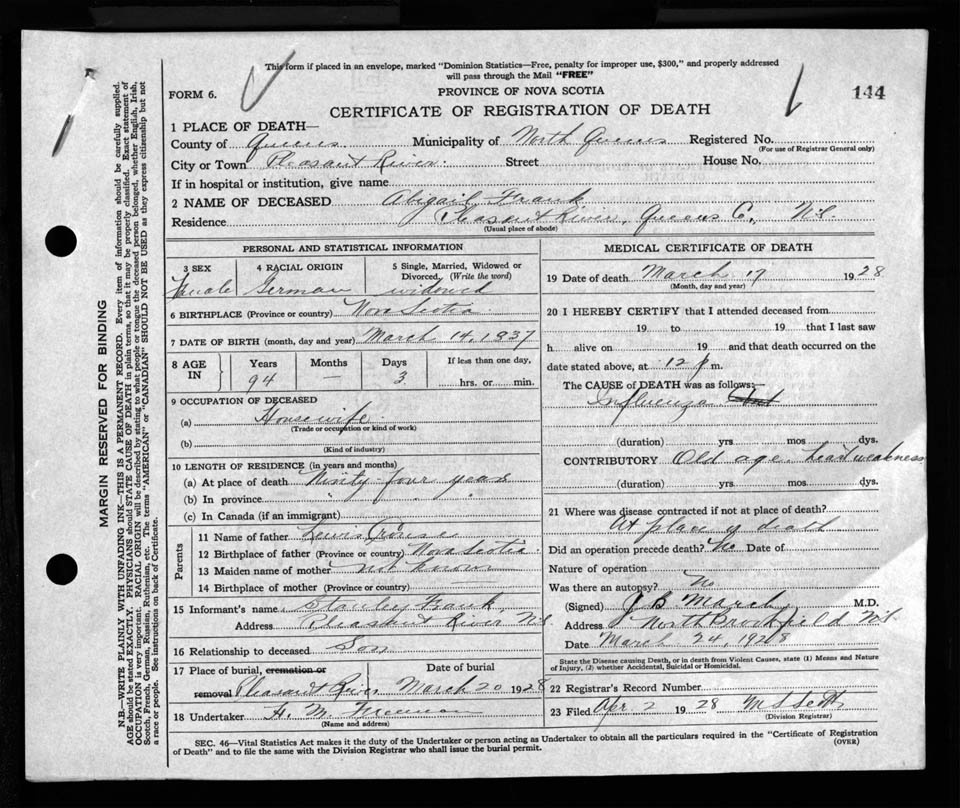 This form if placed in an envelope, marked "Dominion Statistics—Free, penalty for improper use, $300," and properly addressed
will pass through the Mail "FREE"
FORM 6.
PROVINCE OF NOVA SCOTIA
144
CERTIFICATE OF REGISTRATION OF DEATH
1 PLACE OF DEATH—
County of Queens Municipality of North Queens Registered No.
(For use of Registrar General only)
City or Town Pleasant River Street House No.
If in hospital or institution, give name
2 NAME OF DECEASED Abigail Frank
Residence Pleasant River, Queens Co., N.S.
(Usual place of abode)
PERSONAL AND STATISTICAL INFORMATION
3 SEX 4 RACIAL ORIGIN 5 Single, Married, Widowed or
Divorced, (Write the word)
Female German widowed
6 BIRTHPLACE (Province or country) Nova Scotia
7 DATE OF BIRTH (month, day and year) March 14, 1837
8 AGE IN Years Months Days If less than one day,
94 — 3 hrs. or min.
9 OCCUPATION OF DECEASED
(a) Housewife
(Trade or occupation or kind of work)
(b)
(Kind of industry)
10 LENGTH OF RESIDENCE (in years and months)
(a) At place of death Ninty four years
(b) In province " " "
(c) In Canada (if an immigrant)
Parents
11 Name of father Lewis Crouse
12 Birthplace of father (Province or country) Nova Scotia
13 Maiden name of mother not known
14 Birthplace of mother (Province or country)
15 Informant's name Stanley Frank
Address Pleasant River N.S.
16 Relationship to deceased Son
17 Place of burial, cremation or Date of burial
removal Pleasant River March 20 1928
18 Undertaker H. M. Freeman
(Name and address)
MEDICAL CERTIFICATE OF DEATH
19 Date of death March 17 1928
(Month, day and year)
20 I HEREBY CERTIFY that I attended deceased from
19 to 19 that I last saw
h alive on 19 and that death occurred on the
date stated above, at 12 p m.
The CAUSE of DEATH was as follows:—
Influenza
(duration) yrs. mos. dys.
CONTRIBUTORY Old age heart weakness
(duration) yrs. mos. dys.
21 Where was disease contracted if not at place of death?
At place of death
Did an operation precede death? No Date of
Nature of operation
Was there an autopsy? No
(Signed) J B March M.D.
Address North Brookfield N.S.
Date March 24, 1928
State the Disease causing Death, or in death from Violent Causes, state (1) Means and Nature
of Injury, (2) whether Accidental, Suicidal or Homicidal.
22 Registrar's Record Number
23 Filed Apr. 2 1928
(Division Registrar)
SEC. 46—Vital Statistics Act makes it the duty of the Undertaker or person acting as Undertaker to obtain all the particulars required in the "Certificate of Registration
of Death" and to file the same with the Division Registrar who shall issue the burial permit.
(OVER)
MARGIN RESERVED FOR BINDING
N.B.—WRITE PLAINLY WITH UNFADING INK—THIS IS A PERMANENT RECORD. Every item of information should be carefully supplied.
AGE should be stated EXACTLY. PHYSICIANS should STATE CAUSE OF DEATH in plain terms, so that it may be properly classified. Exact statement of
OCCUPATION is very important. RACIAL ORIGIN will be described by stating to what people or tongue the deceased person belonged, whether English, Irish,
Scotch, French, German, Russian, Ruthenian, etc. The terms "AMERICAN" or "CANADIAN" SHOULD NOT BE USED as they express citizenship but not
a race or people. See instructions on back of Certificate.